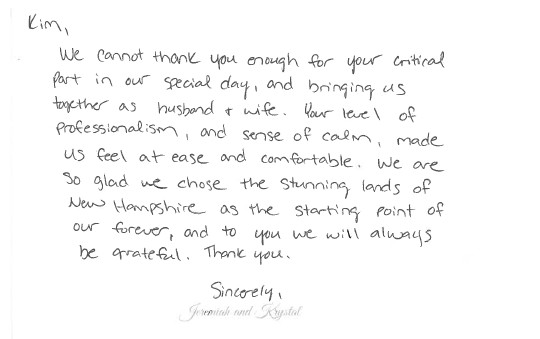 Kim,
We cannot thank you enough for your critical
part in our special day, and bringing us
together as husband + wife. Your level of
professionalism, and sense of calm, made
us feel at ease and comfortable. We are
so glad we chose the stunning lands of
New Hampshire as the starting point of
our forever, and to you we will always
be grateful. Thank you.
Sincerely,
Jeremiah and Krystal